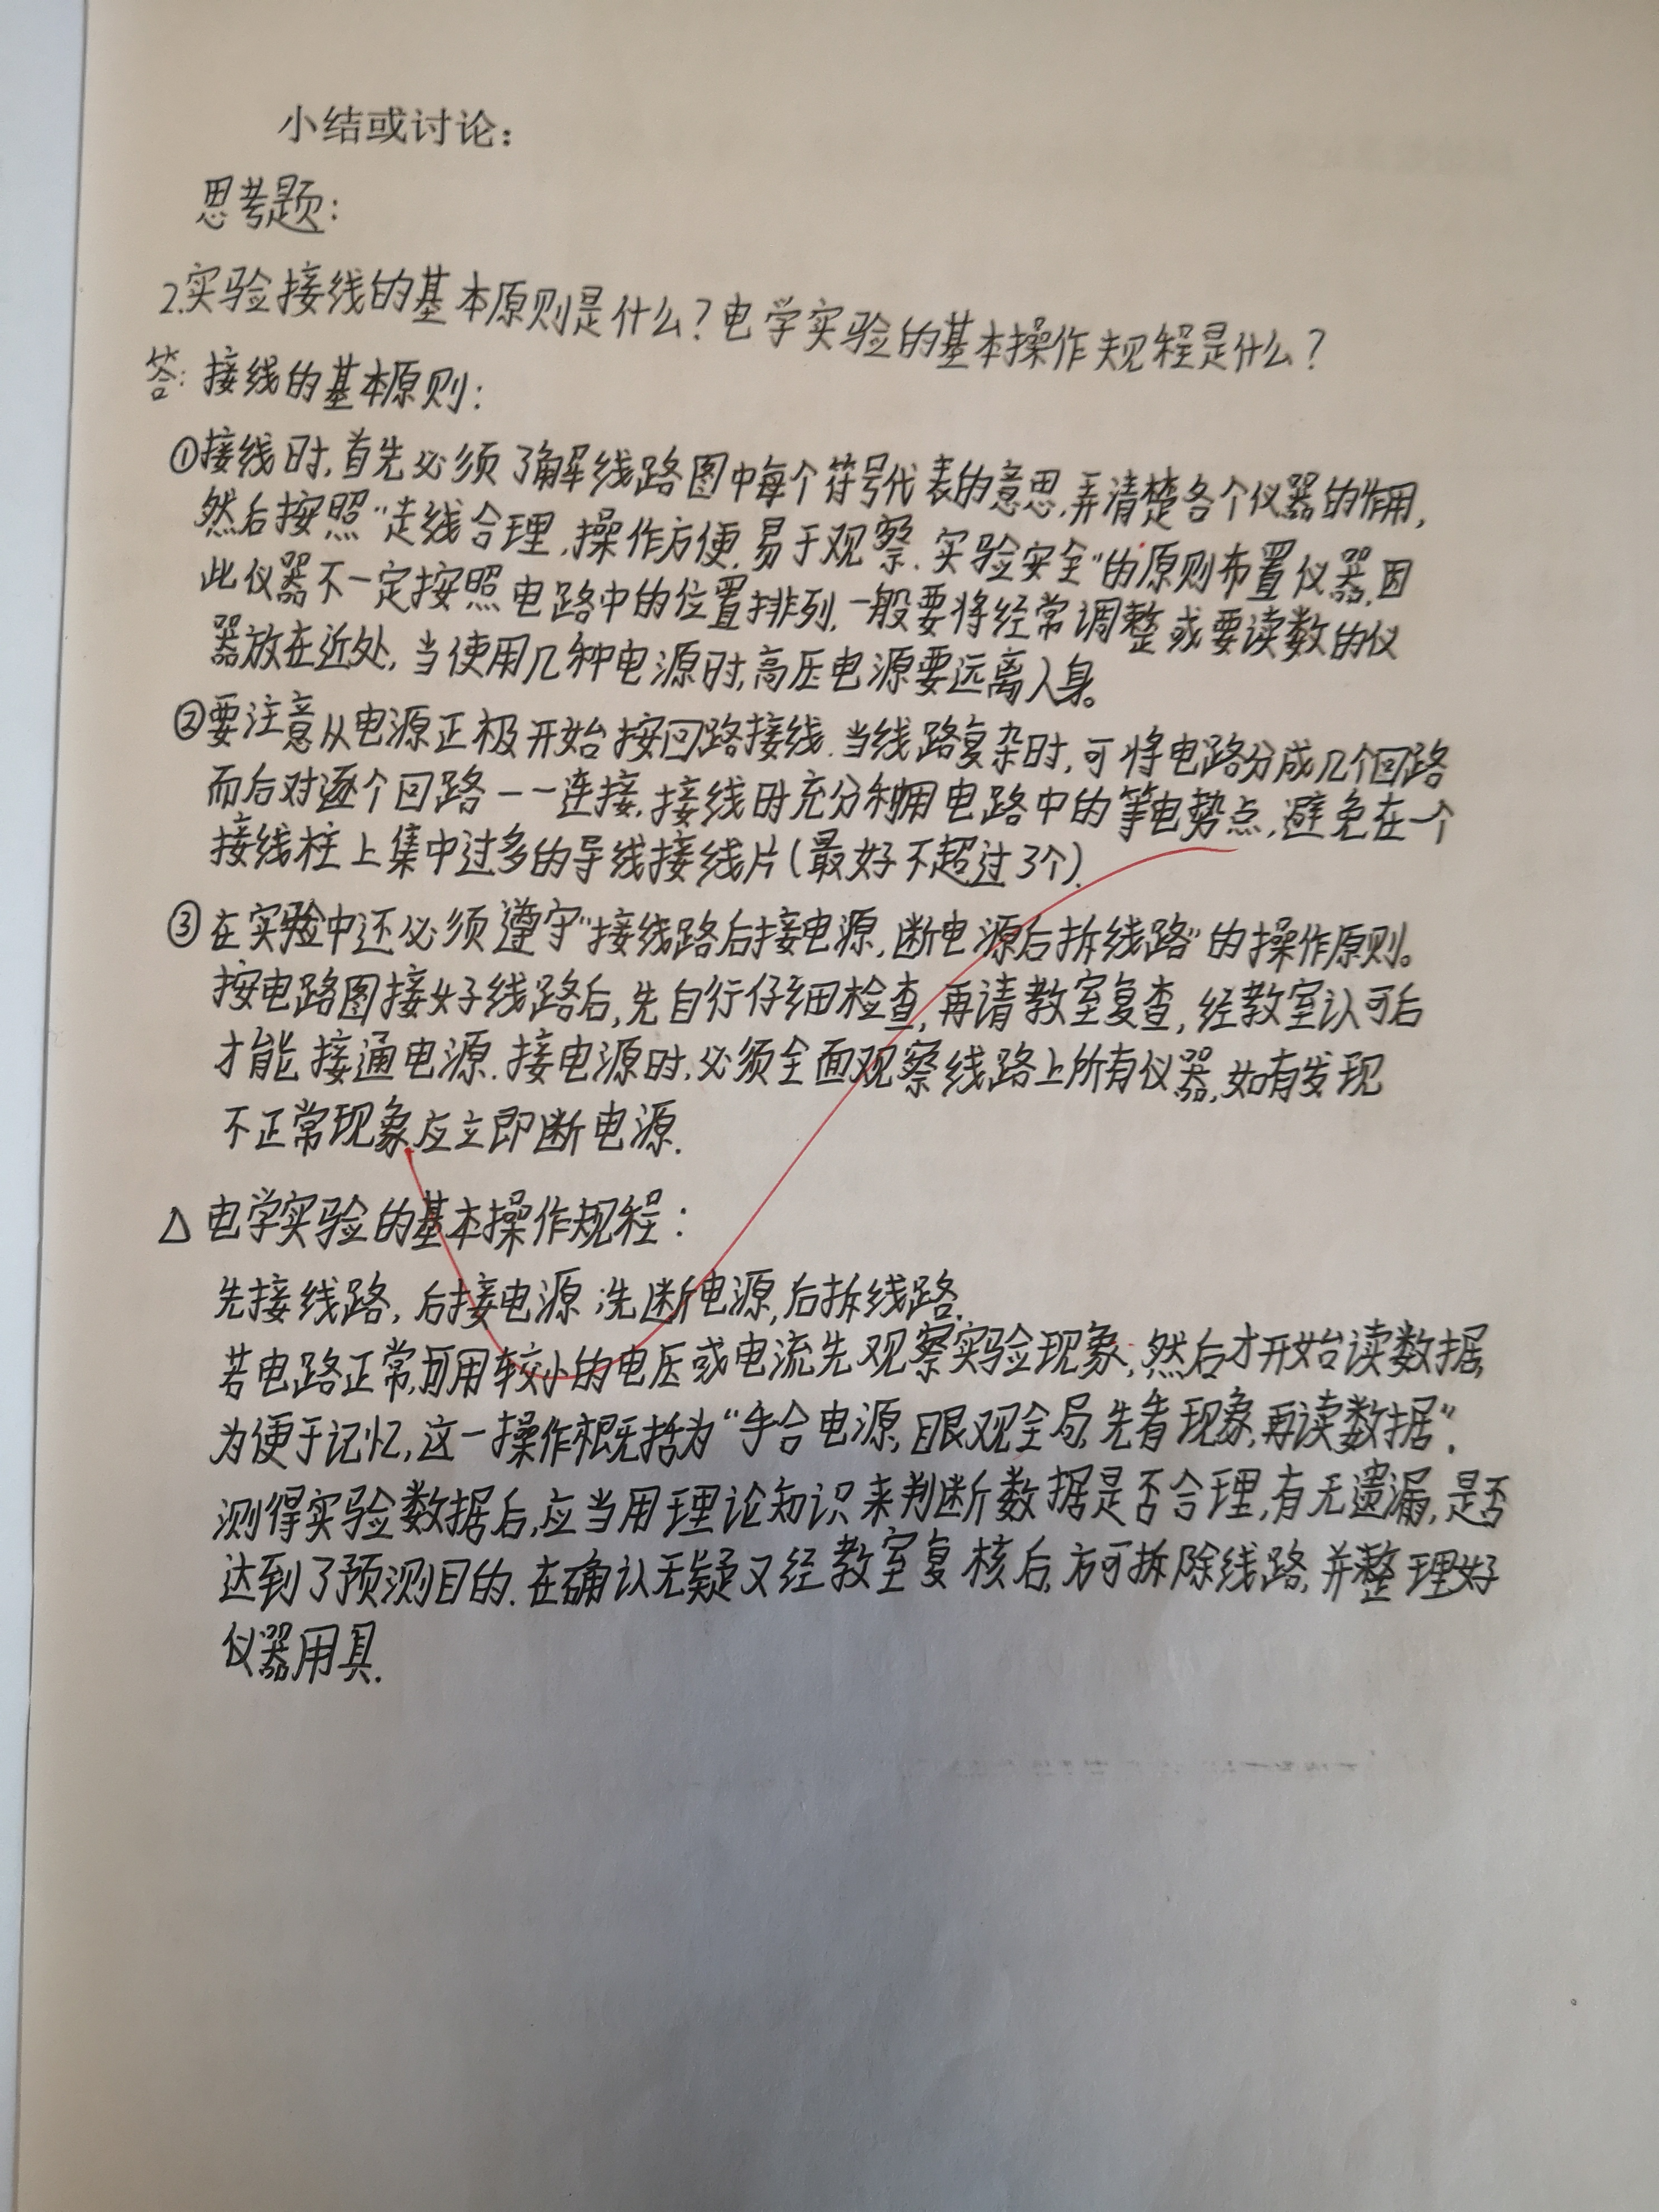 小结或讨论：
思考题：
2.实验接线的基本原则是什么？电学实验的基本操作规程是什么？
答：接线的基本原则：
①接线时,首先必须了解线路图中每个符号代表的意思,弄清楚各个仪器的作用,
然后按照“走线合理,操作方便,易于观察.实验安全”的原则布置仪器,因
此仪器不一定按照电路中的位置排列,一般要将经常调整或要读数的仪
器放在近处,当使用几种电源时,高压电源要远离人身。
②要注意从电源正极开始按回路接线.当线路复杂时,可将电路分成几个回路
而后对逐个回路一一连接,接线时充分利用电路中的等电势点,避免在一个
接线柱上集中过多的导线接线片(最好不超过3个).
③在实验中还必须遵守“接线路后接电源,断电源后拆线路”的操作原则。
按电路图接好线路后,先自行仔细检查,再请教室复查,经教室认可后
才能接通电源.接电源时,必须全面观察线路上所有仪器,如有发现
不正常现象,应立即断电源.
△电学实验的基本操作规程：
先接线路,后接电源;先断电源,后拆线路.
若电路正常,可用较小的电压或电流先观察实验现象,然后才开始读数据,
为便于记忆,这一操作概括为“手合电源,眼观全局,先看现象,再读数据”.
测得实验数据后,应当用理论知识来判断数据是否合理,有无遗漏,是否
达到了预测目的.在确认无疑又经教室复核后,方可拆除线路,并整理好
仪器用具.